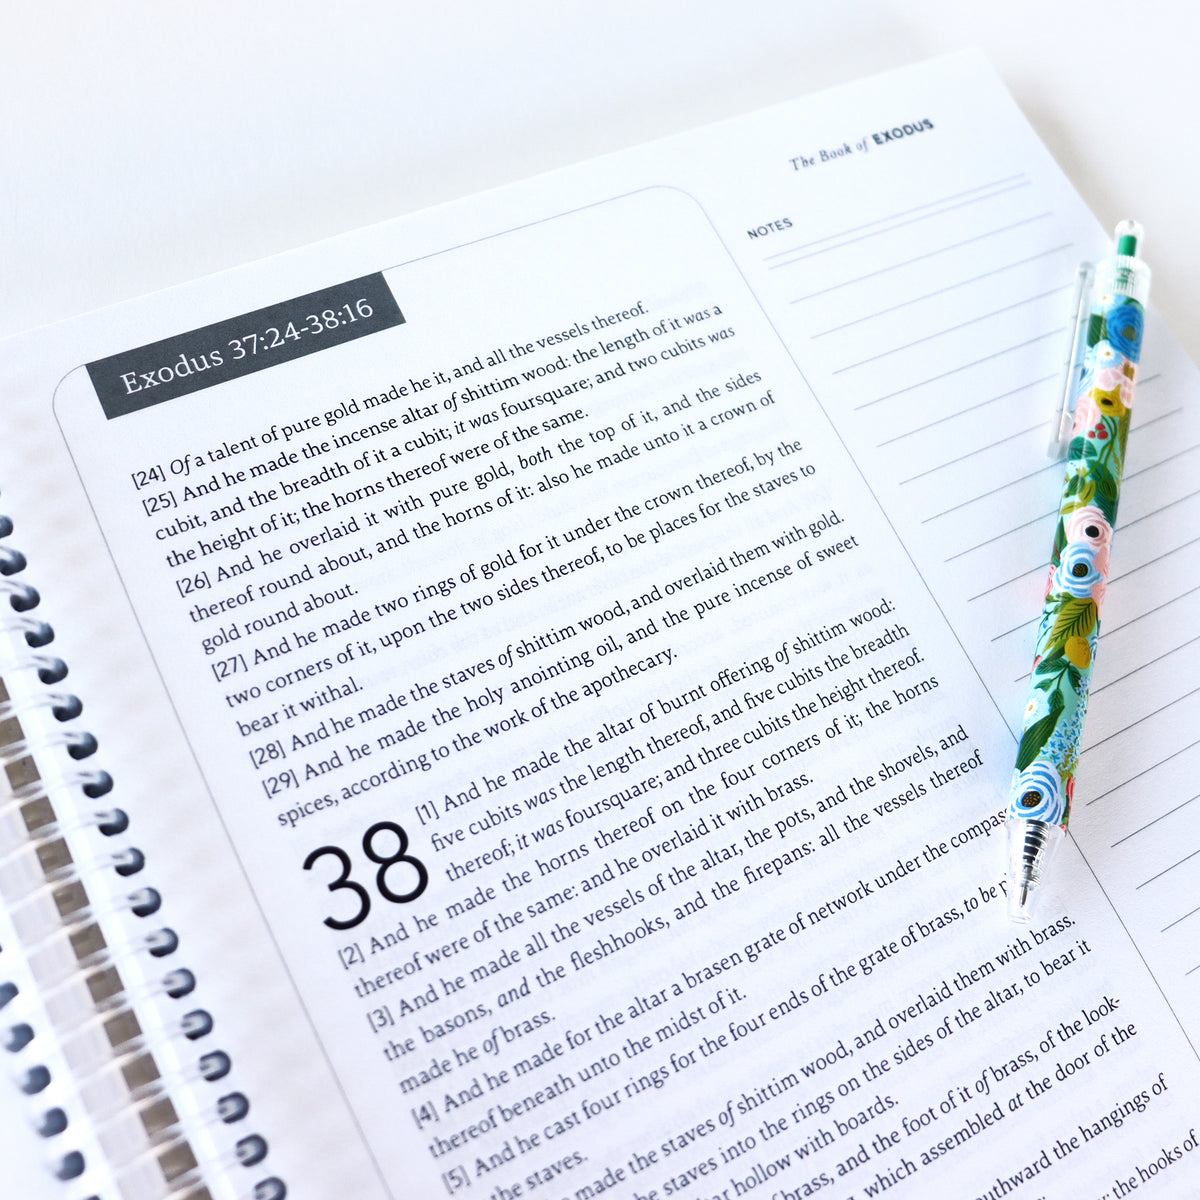 The Book of EXODUS
NOTES
Exodus 37:24-38:16
[24] Of a talent of pure gold made he it, and all the vessels thereof.
[25] And he made the incense altar of shittim wood: the length of it was a
cubit, and the breadth of it a cubit; it was foursquare; and two cubits was
the height of it; the horns thereof were of the same.
[26] And he overlaid it with pure gold, both the top of it, and the sides
thereof round about, and the horns of it: also he made unto it a crown of
gold round about.
[27] And he made two rings of gold for it under the crown thereof, by the
two corners of it, upon the two sides thereof, to be places for the staves to
bear it withal.
[28] And he made the staves of shittim wood, and overlaid them with gold.
[29] And he made the holy anointing oil, and the pure incense of sweet
spices, according to the work of the apothecary.
38
[1] And he made the altar of burnt offering of shittim wood:
five cubits was the length thereof, and five cubits the breadth
thereof; it was foursquare; and three cubits the height thereof.
[2] And he made the horns thereof on the four corners of it; the horns
thereof were of the same: and he overlaid it with brass.
[3] And he made all the vessels of the altar, the pots, and the shovels, and
the basons, and the fleshhooks, and the firepans: all the vessels thereof
made he of brass.
[4] And he made for the altar a brasen grate of network under the compass
thereof beneath unto the midst of it.
[5] And he cast four rings for the four ends of the grate of brass, to be
the staves.
made the staves of shittim wood, and overlaid them with brass.
he staves into the rings on the sides of the altar, to bear it
ar hollow with boards.
brass, and the foot of it of brass, of the look-
which assembled at the door of the
outhward the hangings of
the hooks of